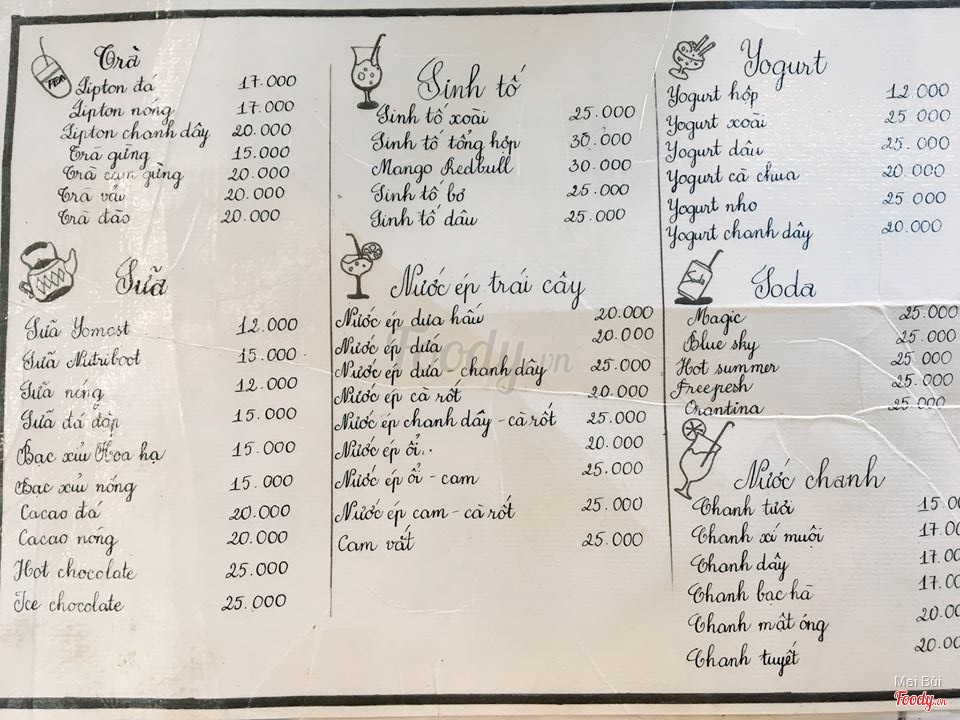 Trà
Lipton đá 17.000
Lipton nóng 17.000
Lipton chanh dây 20.000
Trà gừng 15.000
Trà cam gừng 20.000
Trà vải 20.000
Trà đào 20.000
Sữa
Sữa Yomost 12.000
Sữa Nutriboot 15.000
Sữa nóng 12.000
Sữa đá đập 15.000
Bạc xỉu Hoa hạ 15.000
Bạc xỉu nóng 15.000
Cacao đá 20.000
Cacao nóng 20.000
Hot chocolate 25.000
Ice chocolate 25.000
Sinh tố
Sinh tố xoài 25.000
Sinh tố tổng hợp 30.000
Mango Redbull 30.000
Sinh tố bơ 25.000
Sinh tố dâu 25.000
Nước ép trái cây
Nước ép dưa hấu 20.000
Nước ép dứa 20.000
Nước ép dứa - chanh dây 25.000
Nước ép cà rốt 20.000
Nước ép chanh dây - cà rốt 25.000
Nước ép ổi 20.000
Nước ép ổi - cam 25.000
Nước ép cam - cà rốt 25.000
Cam vắt 25.000
Yogurt
Yogurt hộp 12 000
Yogurt xoài 25 000
Yogurt dâu 25.000
Yogurt cà chua 20.000
Yogurt nho 25 000
Yogurt chanh dây 20.000
Soda
Magic 25.000
Blue sky 25.000
Hot summer 25.000
Freefresh 25.000
Orantina 25.000
Nước chanh
Chanh tươi 15.00
Chanh xí muội 17.00
Chanh dây 17.00
Chanh bạc hà 17.00
Chanh mật ong 20.00
Chanh tuyết 20.00
Foody.vn
Mai Bùi
Foody.vn